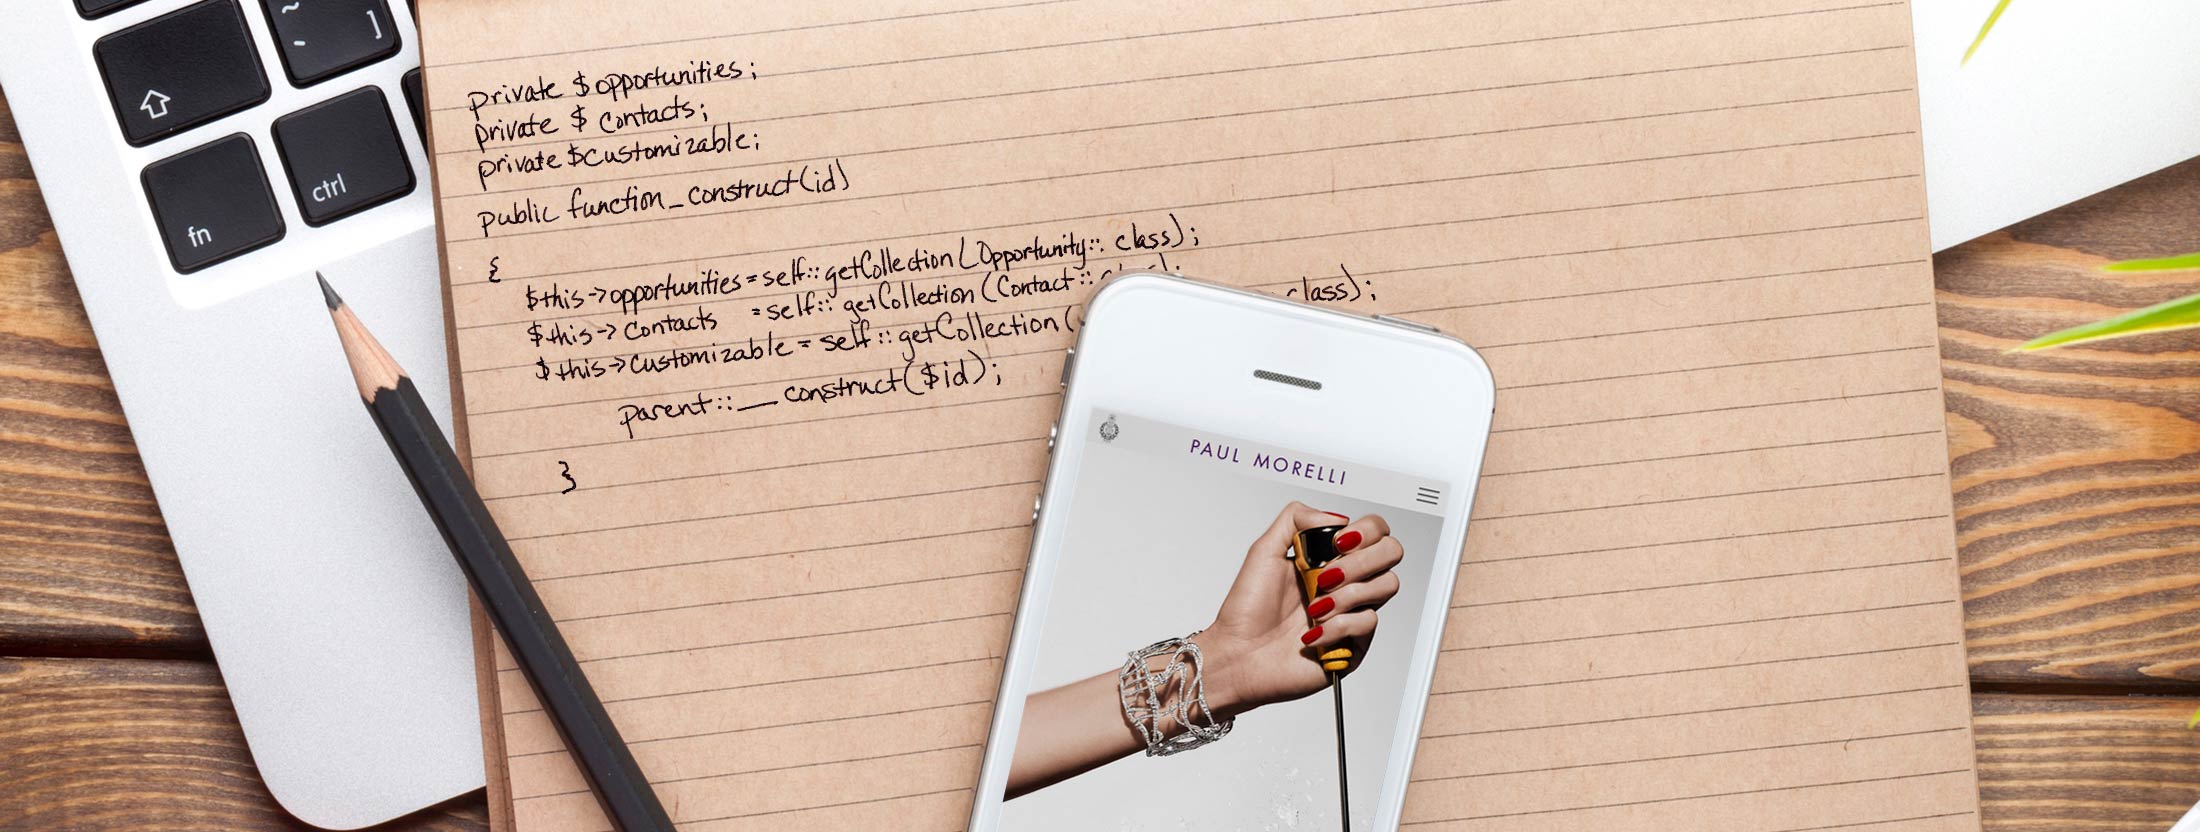 ~
`
]
ctrl
fn
private $opportunities;
private $ contacts;
private $customizable;
public function_construct(id)
{
$this->opportunities = self::getCollection(Opportunity::class);
$this->contacts = self::getCollection(Contact::
$this->customizable = self::getCollection( class);
parent::__construct($id);
}
PAUL MORELLI